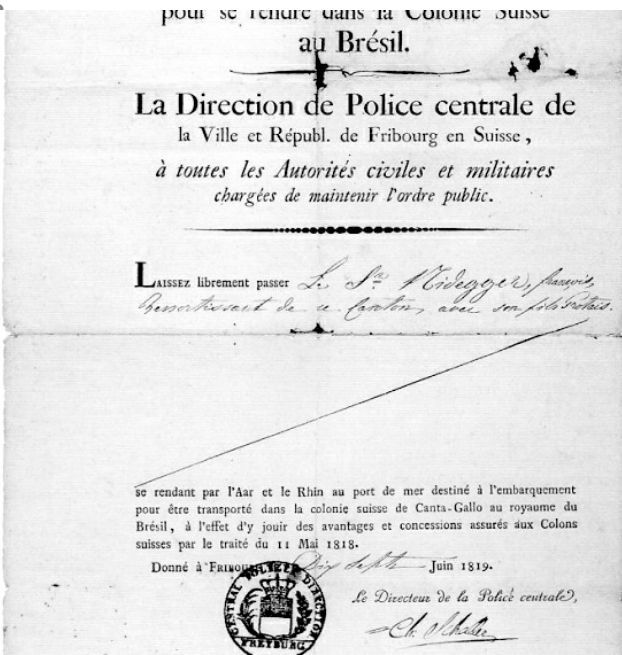 pour se rendre dans la Colonie Suisse
au Brésil.
La Direction de Police centrale de
la Ville et Républ. de Fribourg en Suisse,
à toutes les Autorités civiles et militaires
chargées de maintenir l'ordre public.
LAISSEZ librement passer Le Sr. Nidegger, françois,
Ressortissant de ce Canton, avec son fils Protais.
se rendant par l'Aar et le Rhin au port de mer destiné à l'embarquement
pour être transporté dans la colonie suisse de Canta-Gallo au royaume du
Brésil, à l'effet d'y jouir des avantages et concessions assurés aux Colons
suisses par le traité du 11 Mai 1818.
Donné à FRIBOURG Dix Sept Juin 1819.
Le Directeur de la Police centrale,
Ch. Schaller
CENTRAL POLIZEY DIRECTION
FREYBURG